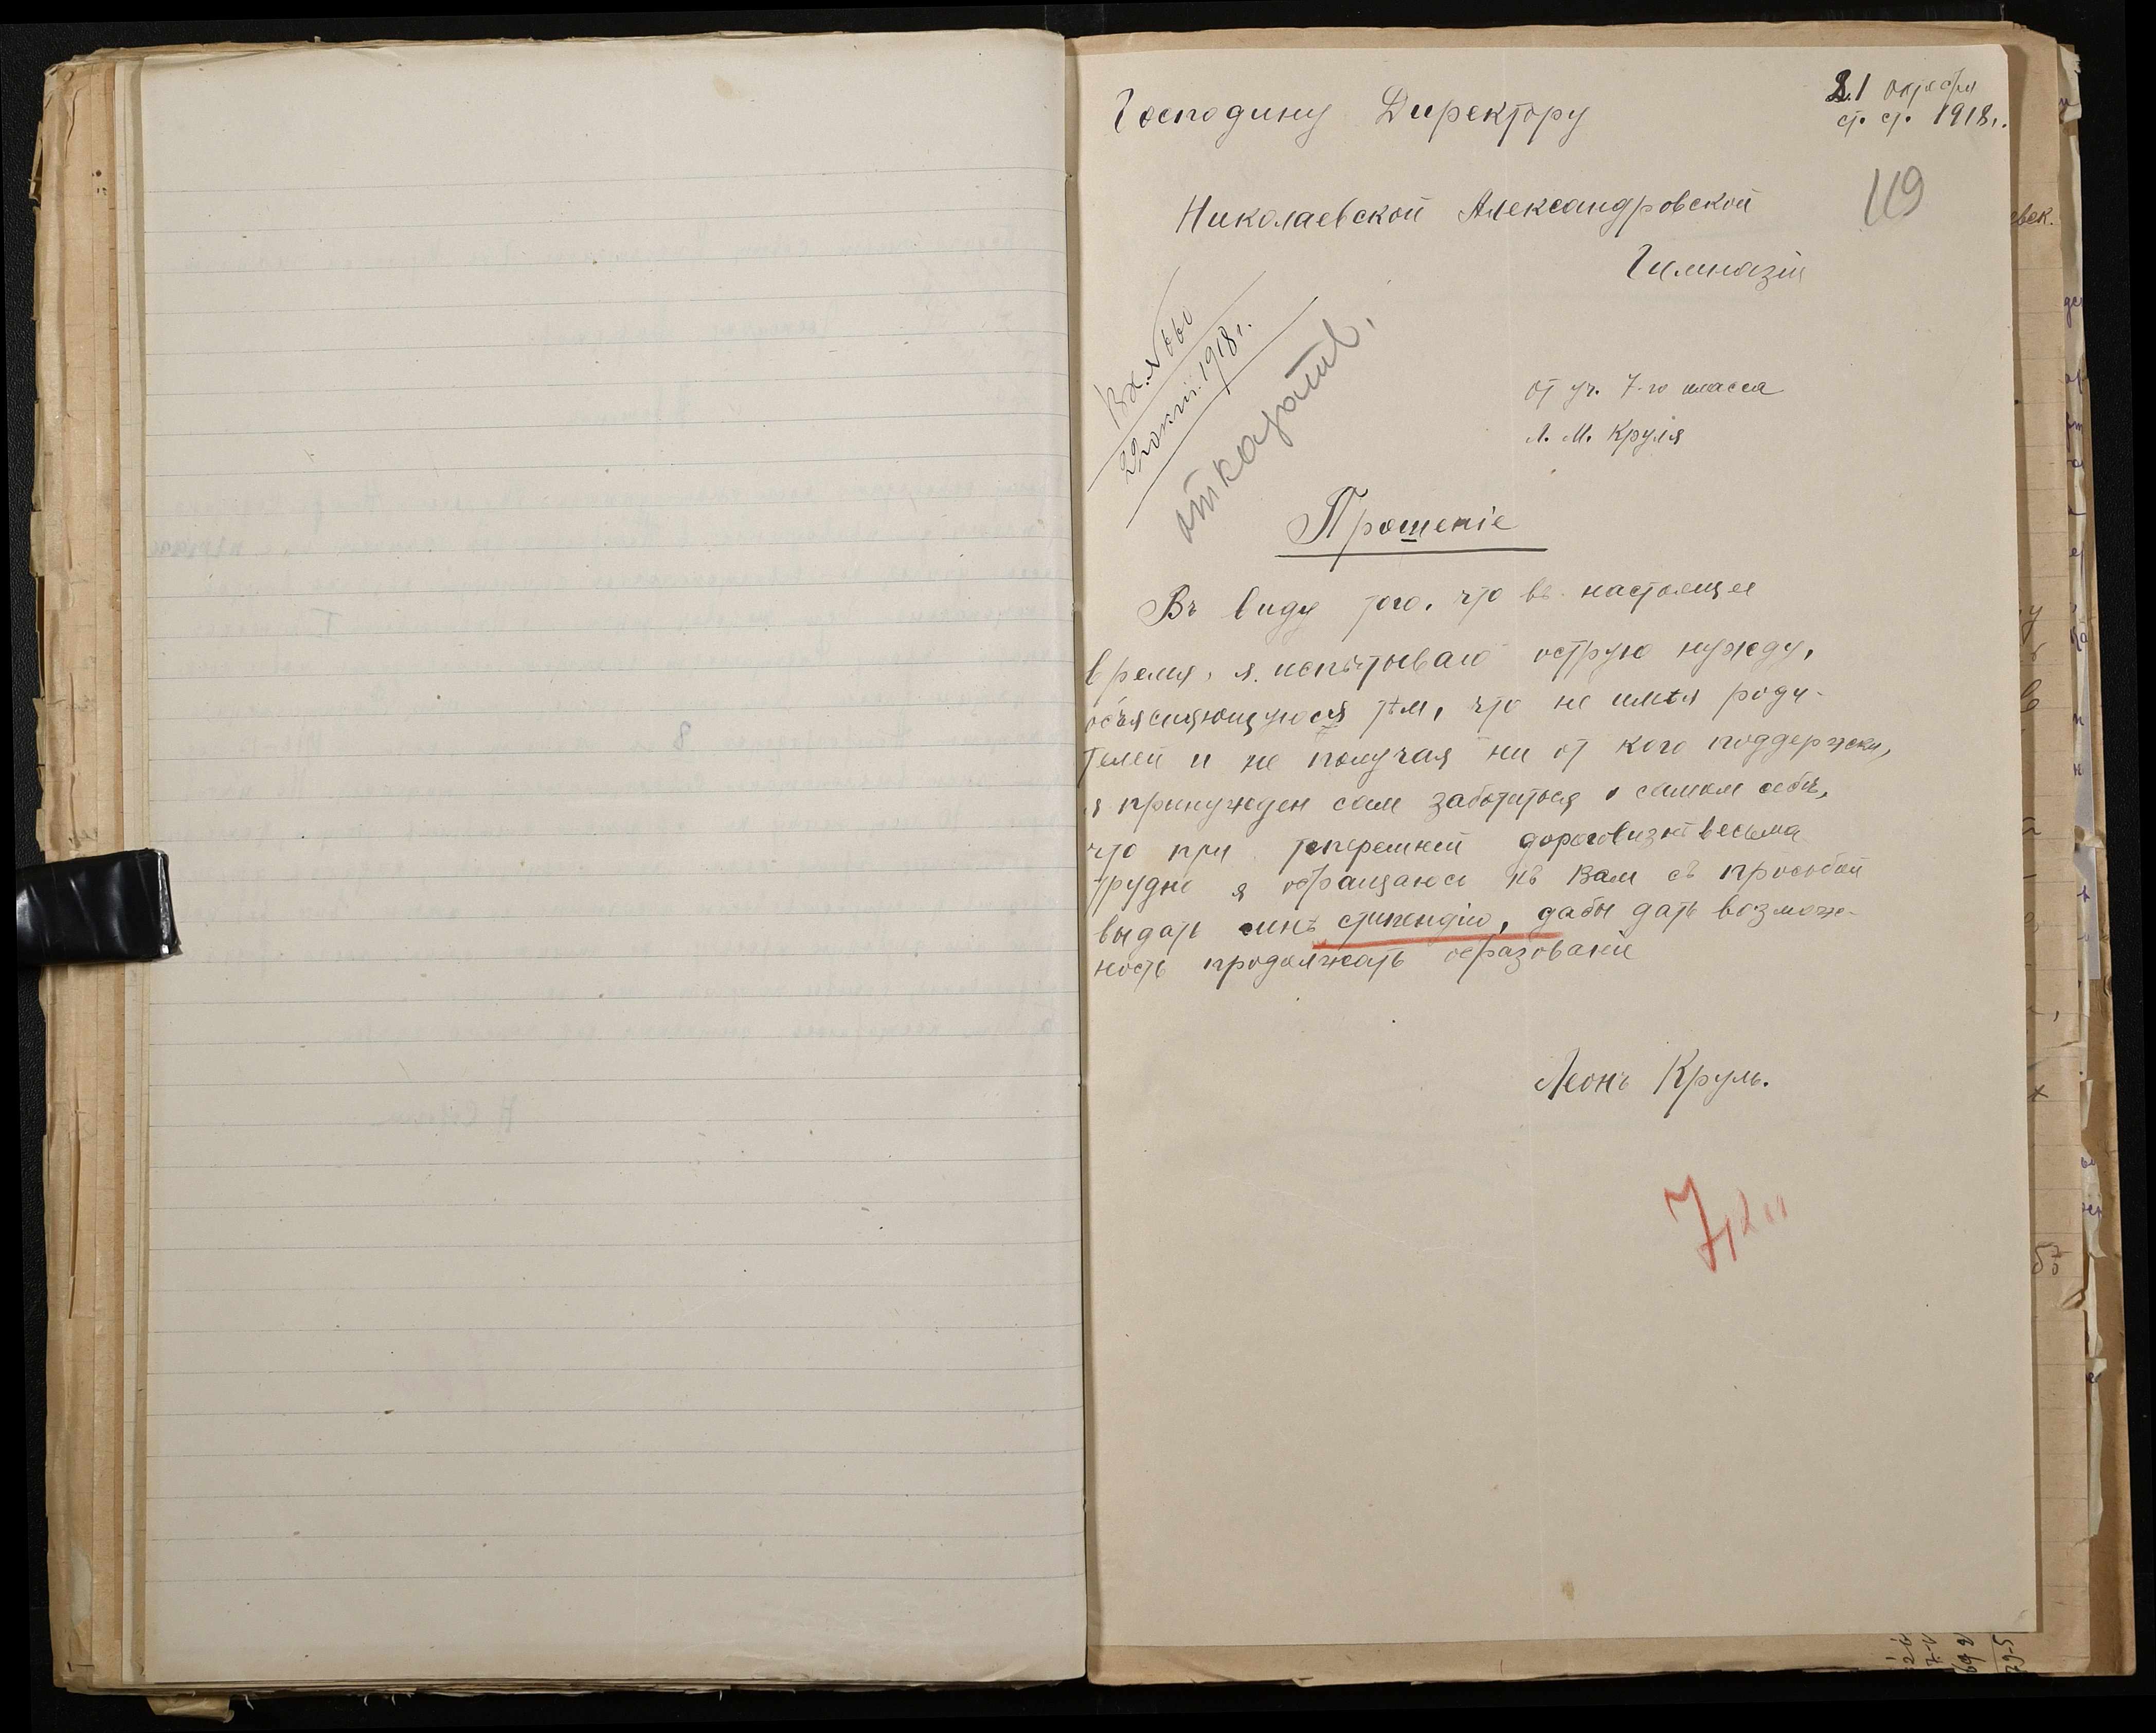 21 октября
ст. ст. 1918 г.
Господину Директору
119
Николаевской Александровской
Гимназіи
Вх. № 660
22 окт. 1918 г.
отказать.
от уч. 7-го класса
Л. М. Круля
Прошеніе
Въ виду того, что въ настоящее
время, я испытываю острую нужду,
объясняющуюся тѣм, что не имѣя роди-
телей и не получая ни от кого поддержки,
я принужден сам заботиться о самом себѣ,
что при теперешней дороговизнѣ весьма
трудно я обращаюсь къ Вам съ просьбой
выдать мнѣ стипендію, дабы дать возмож-
ность продолжать образованіе
Леонъ Круль.